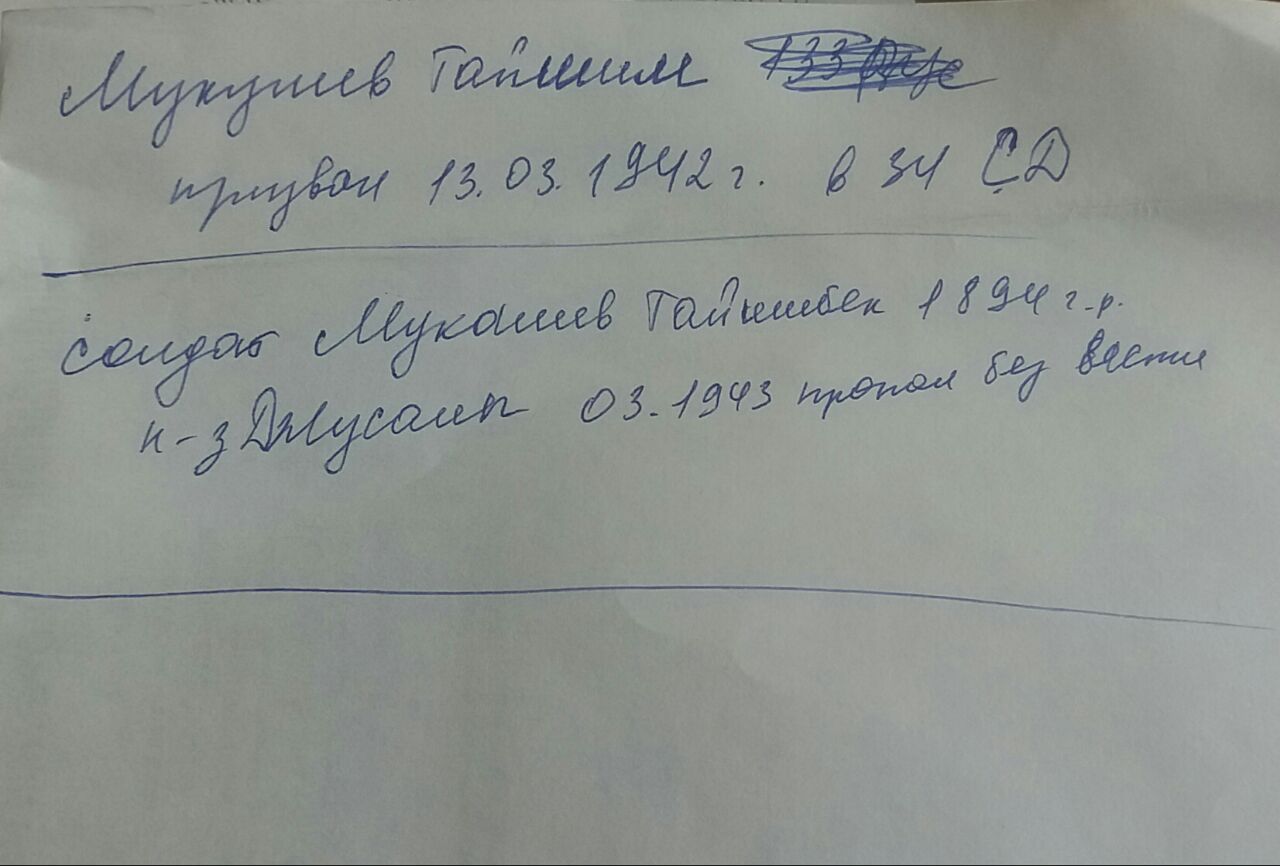 Мукушев Гайшим
призван 13.03.1942 г. в 34 СД
солдат Мукашев Гайшибек 1894 г.р.
к-з Джусалы 03.1943 пропал без вести